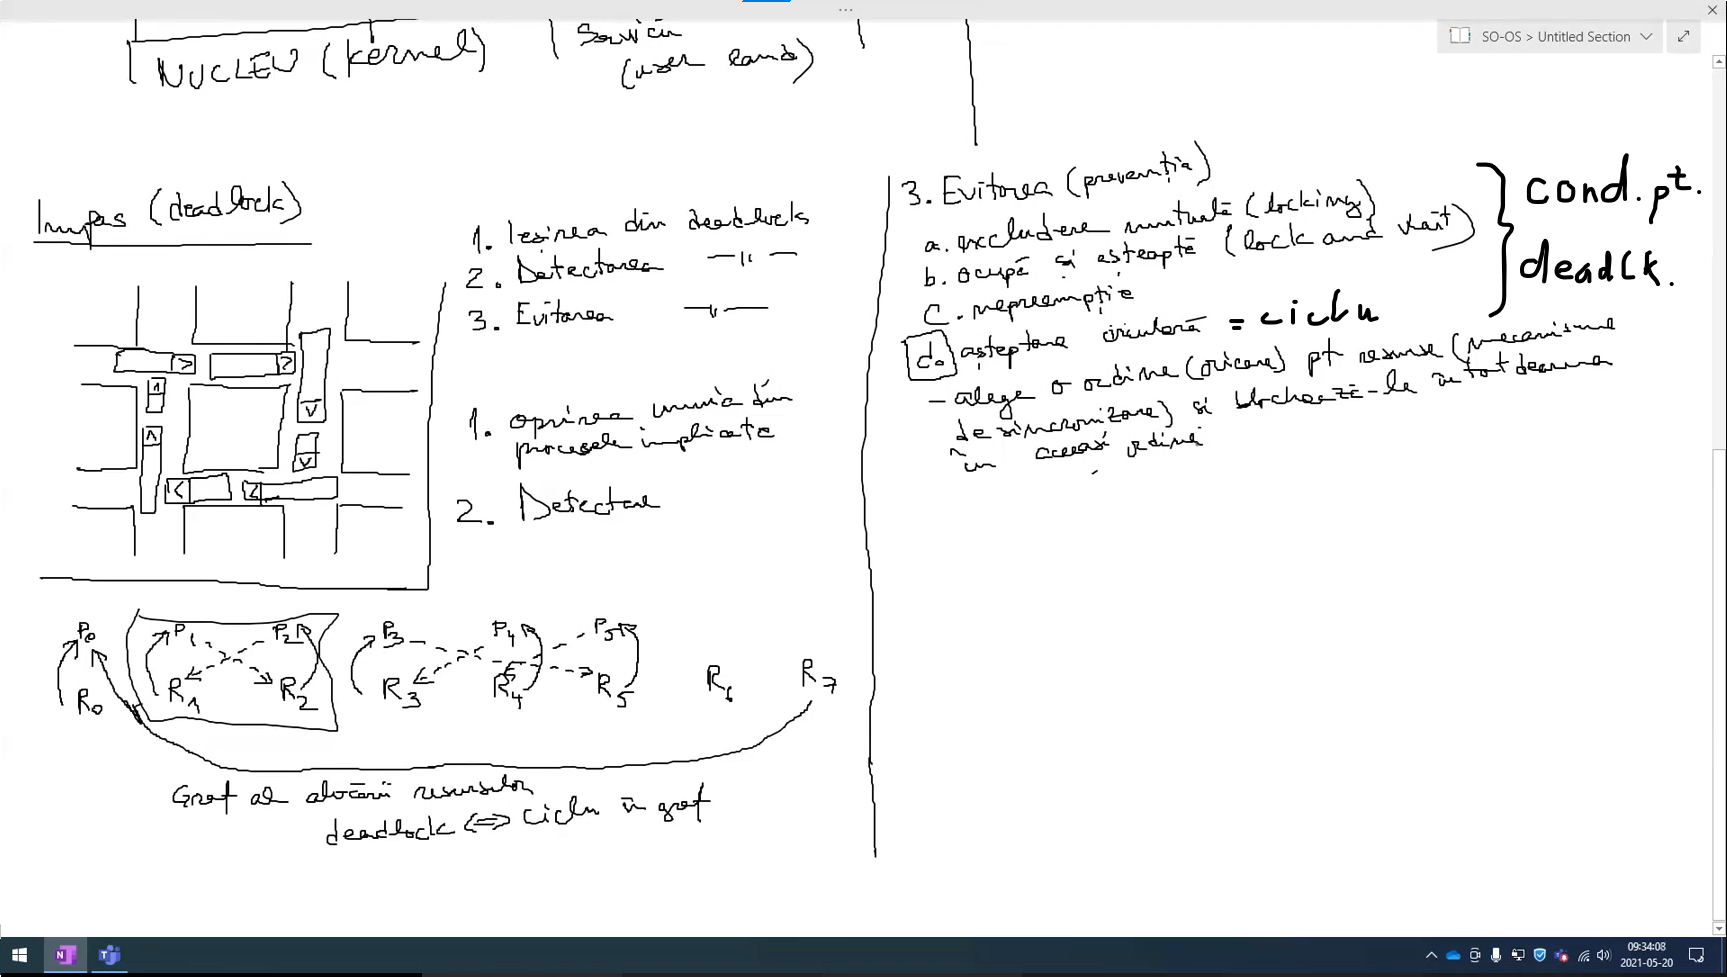 SO-OS > Untitled Section
NUCLEU (kernel)
Servicii
(user land)
Impas (deadlock)
1. Iesirea din deadlocks
2. Detectarea —"—
3. Evitarea —"—
1. oprirea unuia din
procesele implicate
2. Detectare
P0 P1 P2 P3 P4 P5
R0 R1 R2 R3 R4 R5 R6 R7
Graf al alocării resurselor
deadlock <=> ciclu în graf
3. Evitarea (prevenția)
a. excludere mutuală (locking)
b. ocupă și așteaptă (lock and wait)
c. nepreempție
d. așteptare circulară = ciclu
- alege o ordine (oricare) pt resurse (mecanisme
de sincronizare) si blochează-le întotdeauna
în aceeași ordine
cond. pt.
deadlk.
09:34:08
2021-05-20